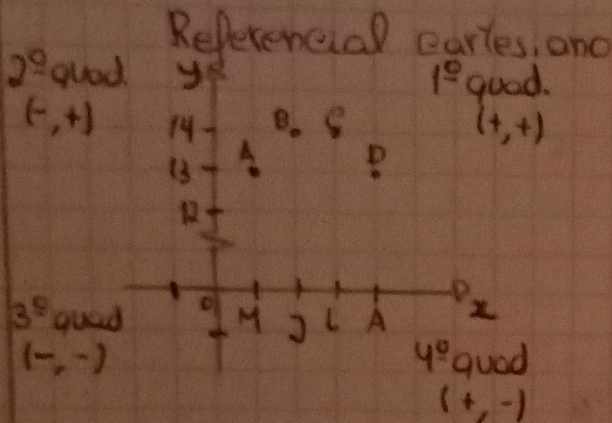 Referencial cartesiano
2º quad. y 1º quad.
(-,+) (+,+)
14 B C
A D
13
12
0 M J L A x
3º quad
(-,-)
4º quad
(+,-)